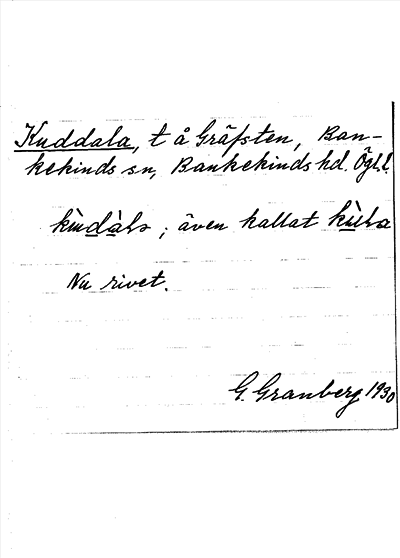 Kuddala, t å Gräfsten, Ban-
kekinds sn, Bankekinds hd. Ögl.
kùdàla ; även kallat kùla
Nu rivet.
G. Granberg 1930